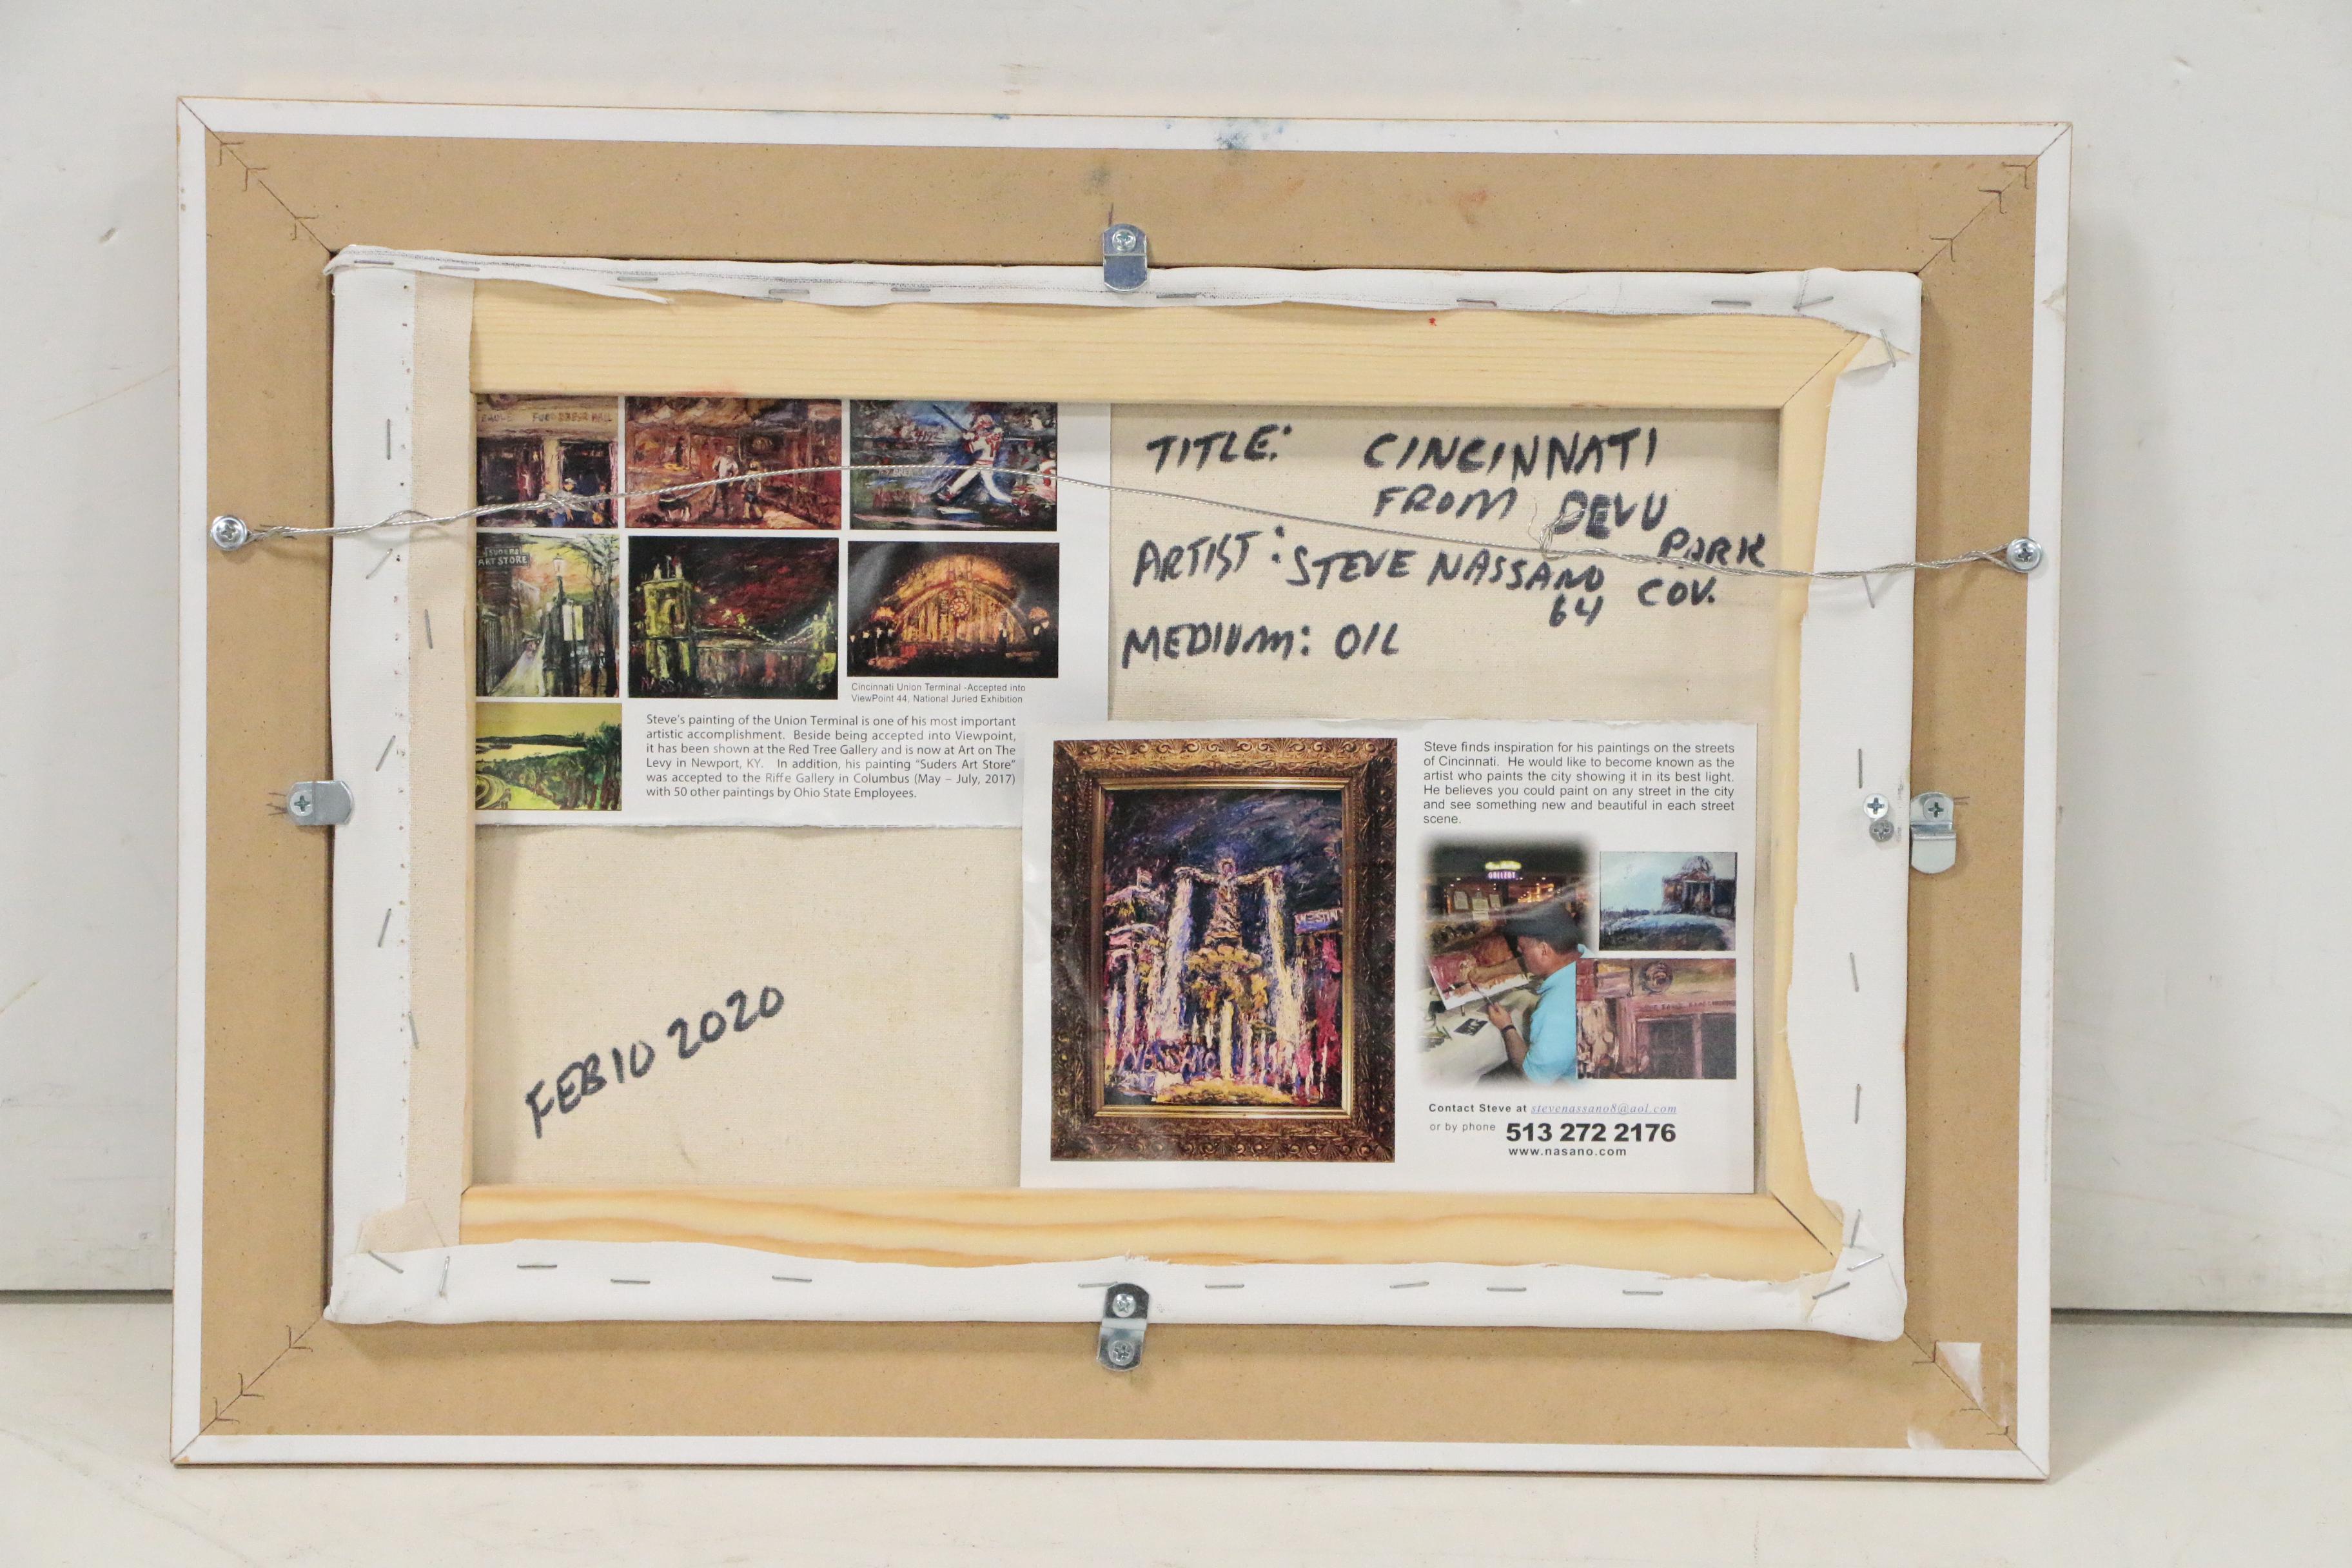 TITLE: CINCINNATI
FROM DEVU
PARK
COV.
ARTIST: STEVE NASSANO
64
MEDIUM: OIL
ART STORE
Cincinnati Union Terminal -Accepted into
ViewPoint 44, National Juried Exhibition
Steve's painting of the Union Terminal is one of his most important
artistic accomplishment. Beside being accepted into Viewpoint,
it has been shown at the Red Tree Gallery and is now at Art on The
Levy in Newport, KY. In addition, his painting "Suders Art Store"
was accepted to the Riffe Gallery in Columbus (May – July, 2017)
with 50 other paintings by Ohio State Employees.
FEB 10 2020
Steve finds inspiration for his paintings on the streets
of Cincinnati. He would like to become known as the
artist who paints the city showing it in its best light.
He believes you could paint on any street in the city
and see something new and beautiful in each street
scene.
Contact Steve at stevenassano8@aol.com
or by phone 513 272 2176
www.nasano.com